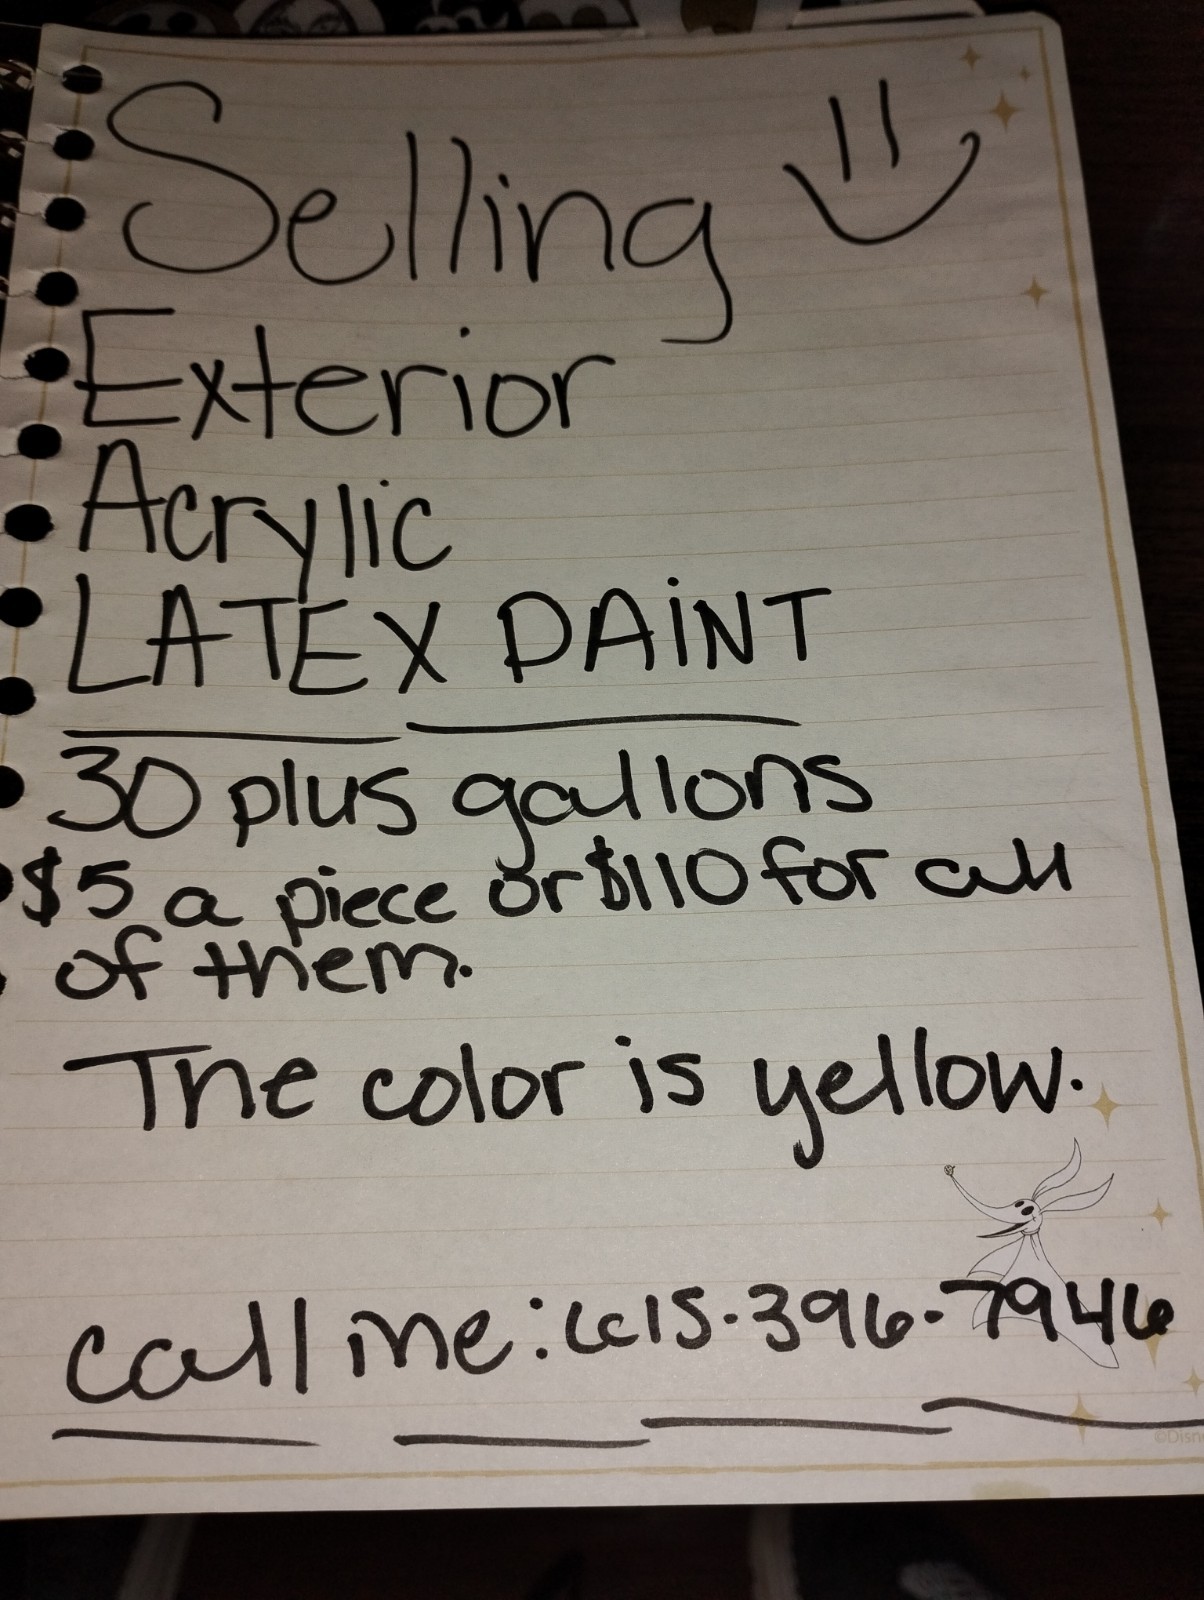 Selling
Exterior
Acrylic
LATEX PAiNT
30 plus gallons
$5 a piece or $110 for all
of them.
The color is yellow.
call me: 615-396-7946
©Disne